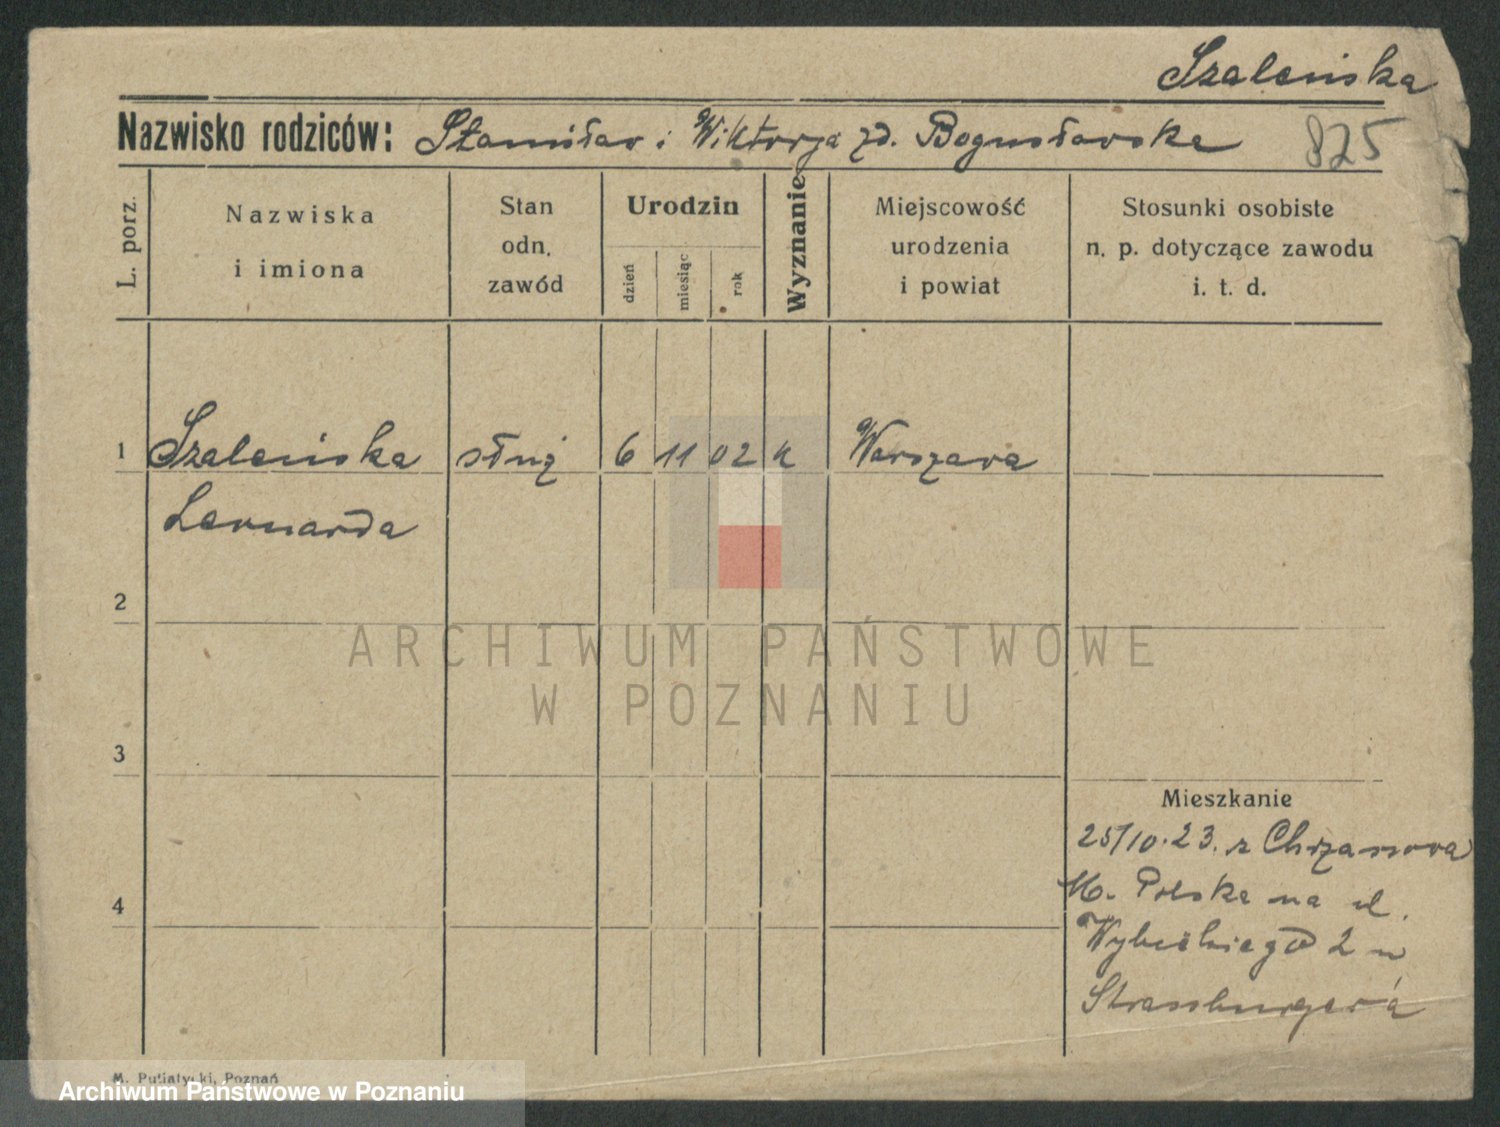 Szaleńska
Nazwisko rodziców: Stanisław i Wiktorja zd. Bogusławska 825
L. porz.
Nazwiska
i imiona
Stan
odn.
zawód
Urodzin
dzień
miesiąc
rok
Wyznanie
Miejscowość
urodzenia
i powiat
Stosunki osobiste
n. p. dotyczące zawodu
i. t. d.
1 Szaleńska służ 6 11 02 k Warszawa
Leonarda
2
ARCHIWUM PAŃSTWOWE
W POZNANIU
3
Mieszkanie
25/10.23. z Chrzanowa
M. Polska na ul.
4
Wybickiego 2 u
Strassburger'a
M. Putiatycki, Poznań
Archiwum Państwowe w Poznaniu